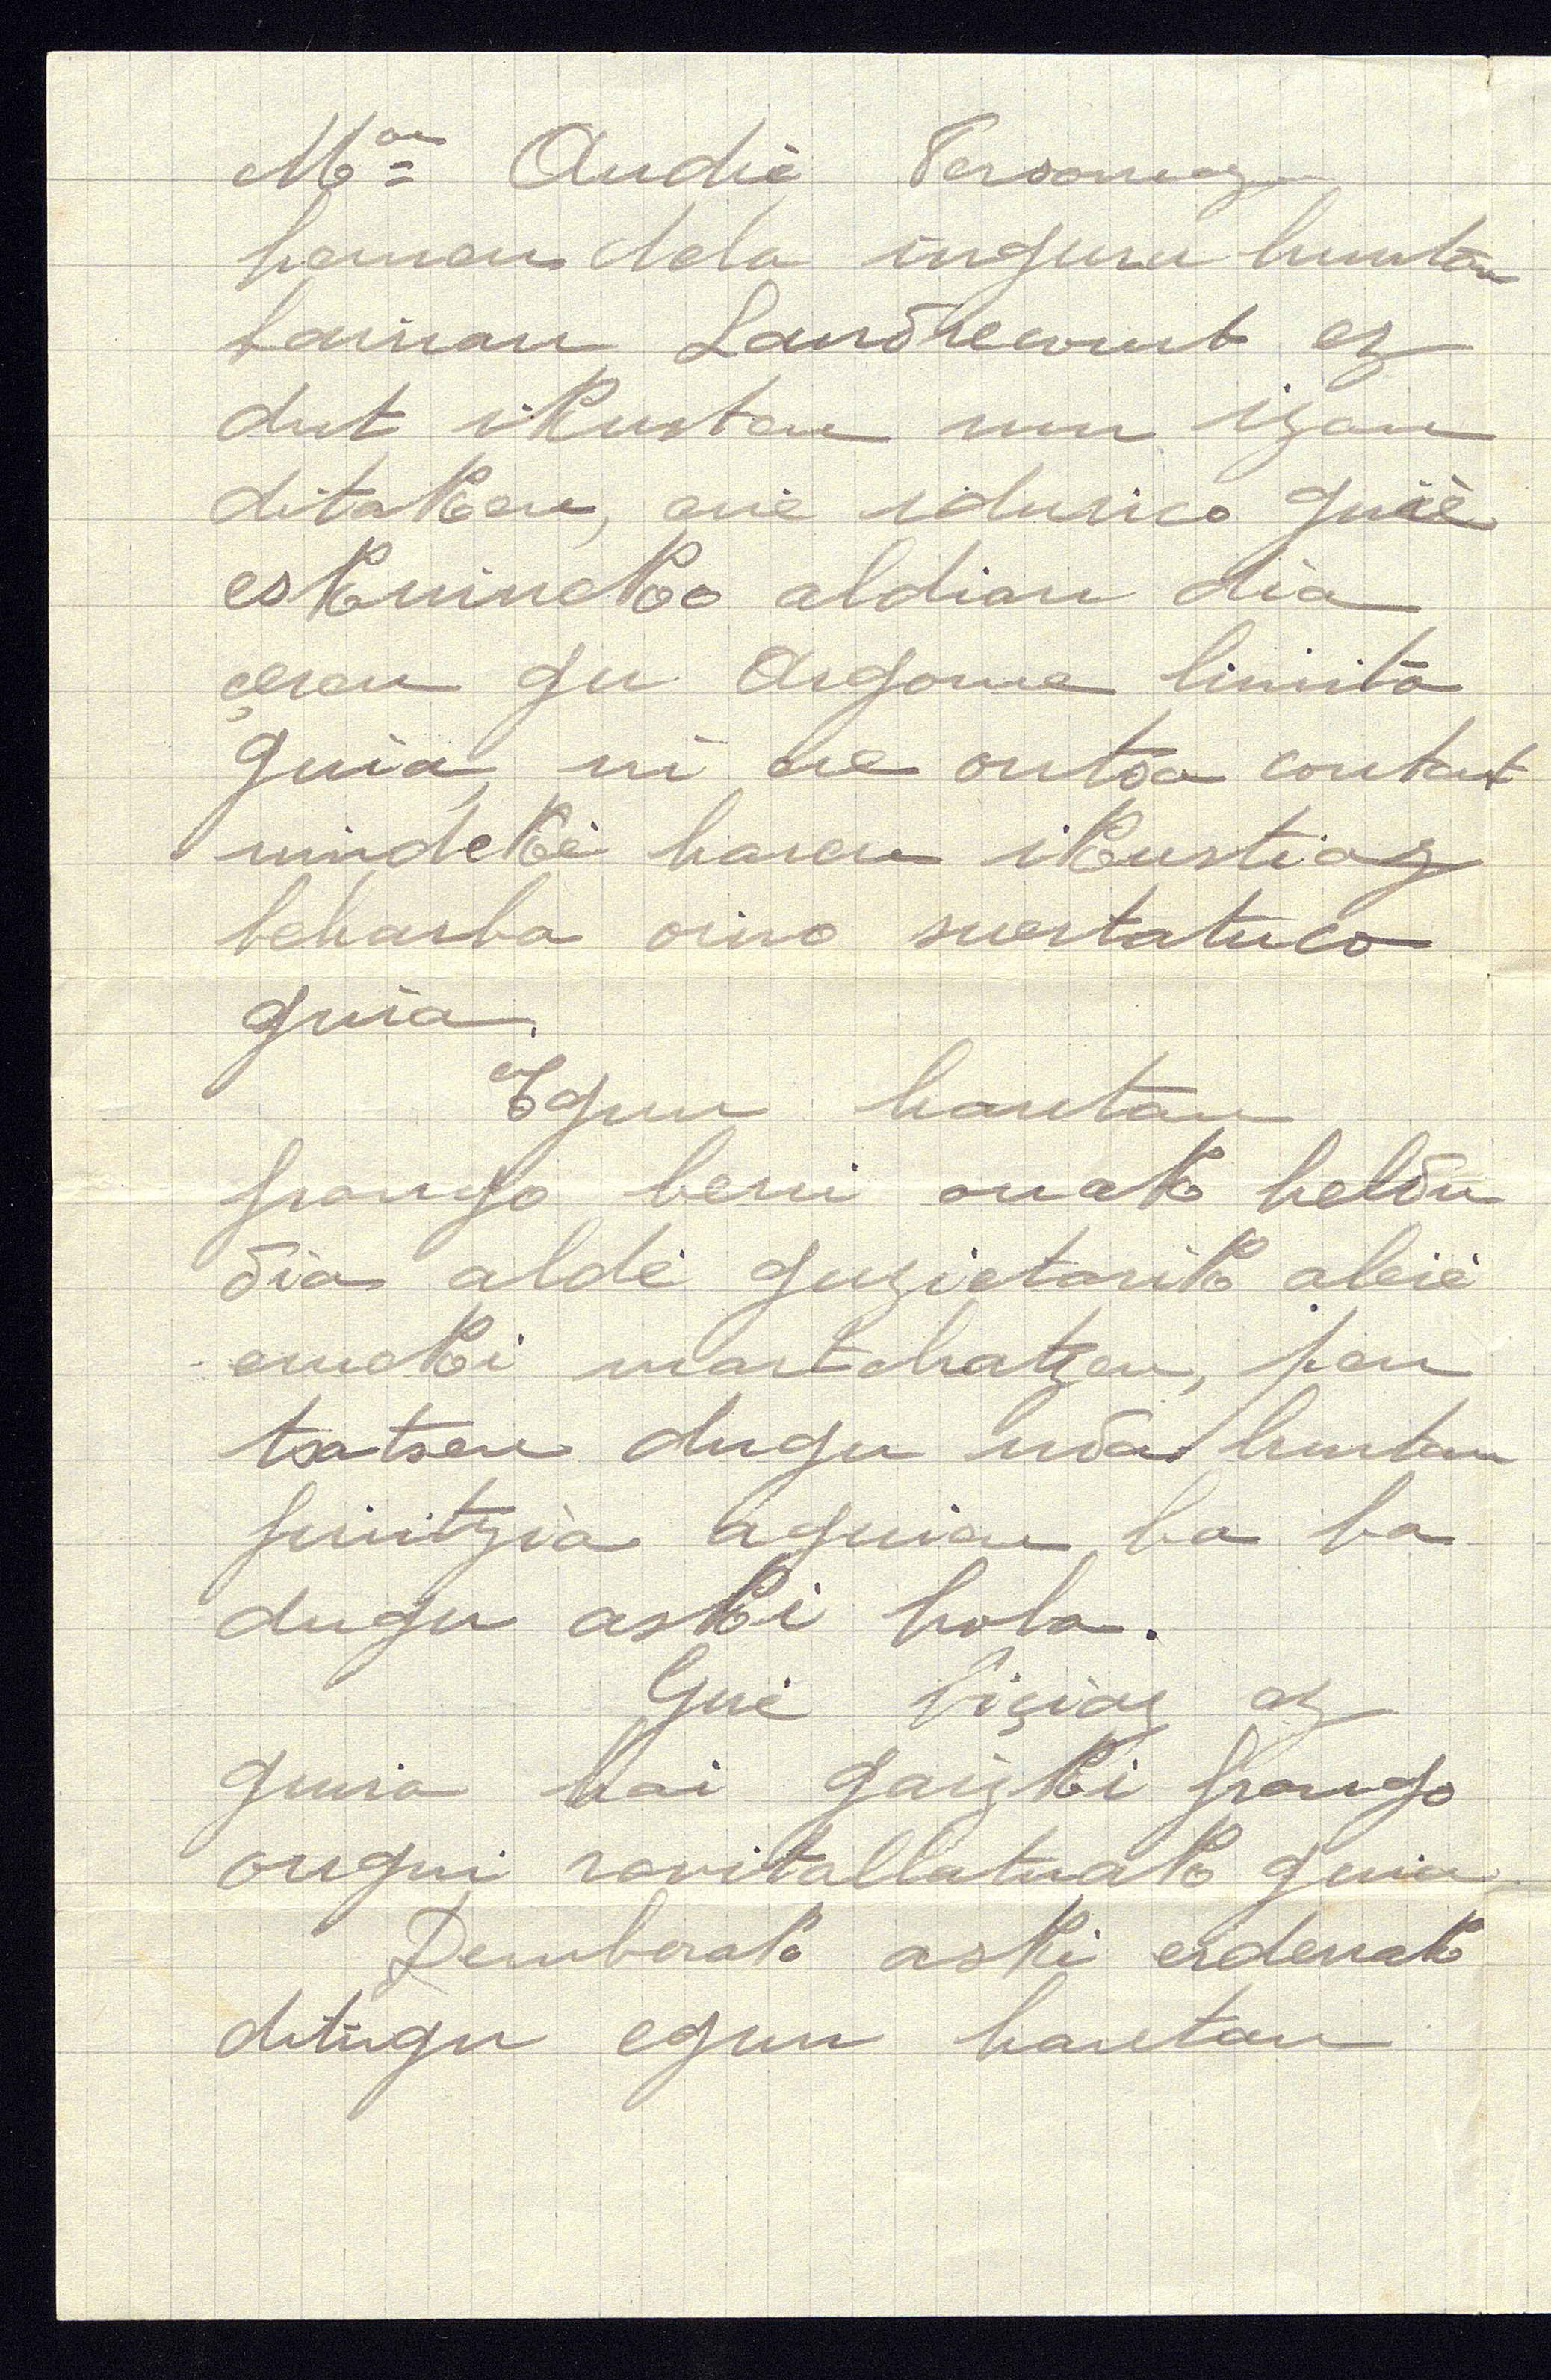 Mon Audiè Personnaz
hemen dela inguru huntan
bainan Landrecourt ez
dut ikusten nun izan
ditaken, ene idurico guiè
eskuineko aldian dia
ceren gu Argone limita
guia, ni ere ontsa contant
nindekè haren ikustiaz
beharba oino suertatuco
guia.
Egun hautan
frango berri onak heldu
dia aldè guzietarik aleiè
emeki martchatzen, pen
tsatzen dugu uda huntan
finitzia aguian ba ba
dugu aski hola.
Guè biçiaz ez
guira hai gaizki frango
ongui ravitallatuak guia
Demborak aski ederrak
ditugu egun hautan